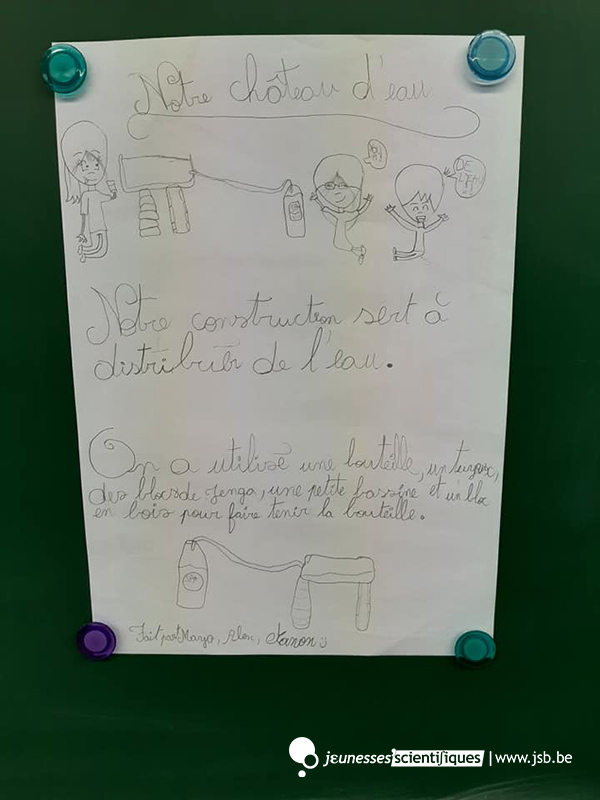 Notre château d'eau
DE
L'EAU
Notre construction sert à
distribuer de l'eau.
On a utilisé une bouteille, un tuyaux,
des blocs de Jenga, une petite bassine et un bloc
en bois pour faire tenir la bouteille.
Fait par Margo, Alex,
jeunesses scientifiques | www.jsb.be